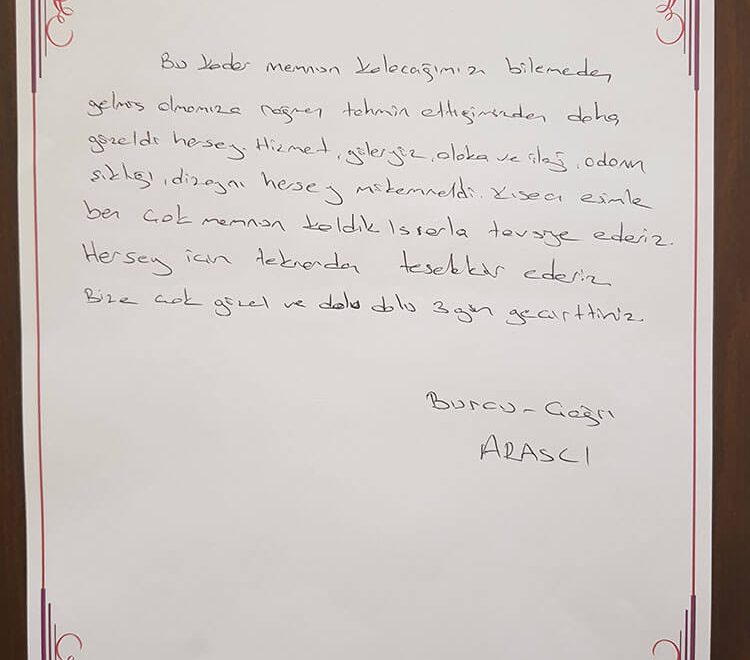 Bu kadar memnun kalacağımızı bilemeden
gelmiş olmamıza rağmen tahmin ettiğimizden daha
güzeldi herşey. Hizmet, güleryüz, alaka ve ilgi, odanın
şıklığı, dizaynı herşey mükemmeldi. Kısaca eşimle
ben çok memnun kaldık Israrla tavsiye ederiz.
Herşey için tekrardan teşekkür ederiz
Bize çok güzel ve dolu dolu 3 gün geçirttiniz.
Burcu - Çağrı
ARASCI